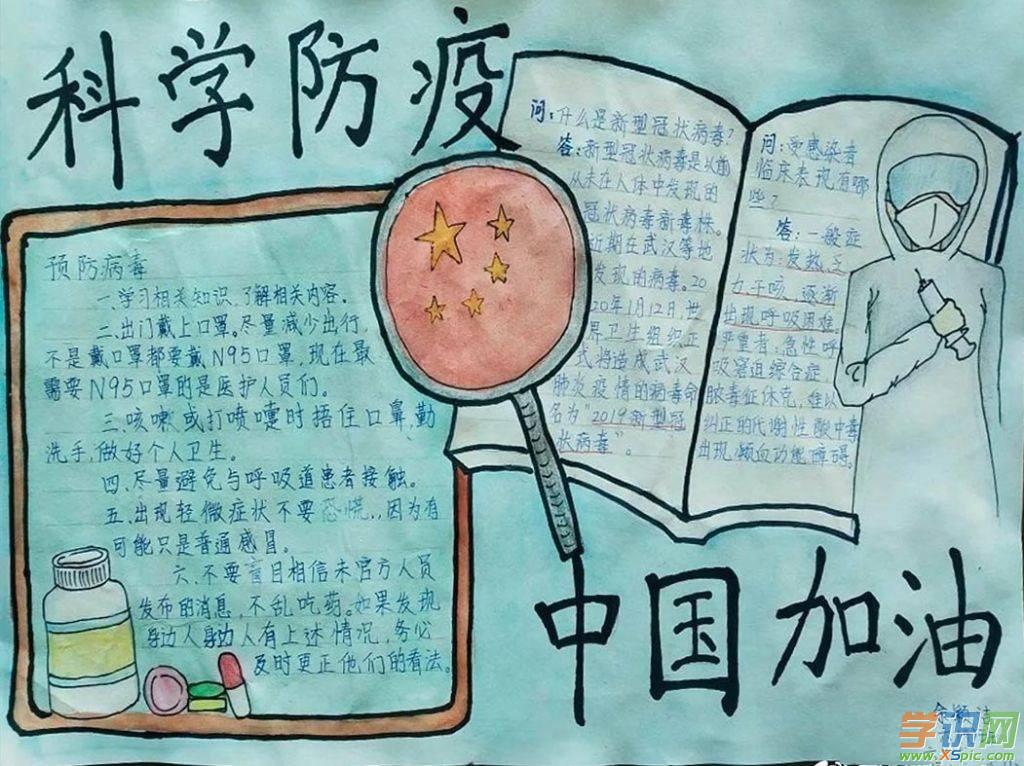 科学防疫
预防病毒
一.学习相关知识,了解相关内容.
二.出门戴上口罩。尽量减少出行,
不是戴口罩都要戴N95口罩,现在最
需要N95口罩的是医护人员们.
三.咳嗽或打喷嚏时捂住口鼻,勤
洗手,做好个人卫生。
四.尽量避免与呼吸道患者接触。
五.出现轻微症状不要恐慌.,因为有
可能只是普通感冒。
六.不要盲目相信未官方人员
发布的消息,不乱吃药。如果发现
身边人身边人有上述情况,务必
及时更正他们的看法。
问:什么是新型冠状病毒?
答:新型冠状病毒是以前
从未在人体中发现的
冠状病毒新毒株。
近期在武汉等地
发现的病毒。20
20年1月12日,世
界卫生组织正
式将造成武汉
肺炎疫情的病毒命
名为"2019新型冠
状病毒"。
问:受感染者
临床表现有哪
些?
答:一般症
状为:发热、乏
力干咳,逐渐
出现呼吸困难,
严重者:急性呼
吸窘迫综合症,
脓毒症休克,难以
纠正的代谢性酸中毒
出现凝血功能障碍。
中国加油
学识网
www.XSpic.com